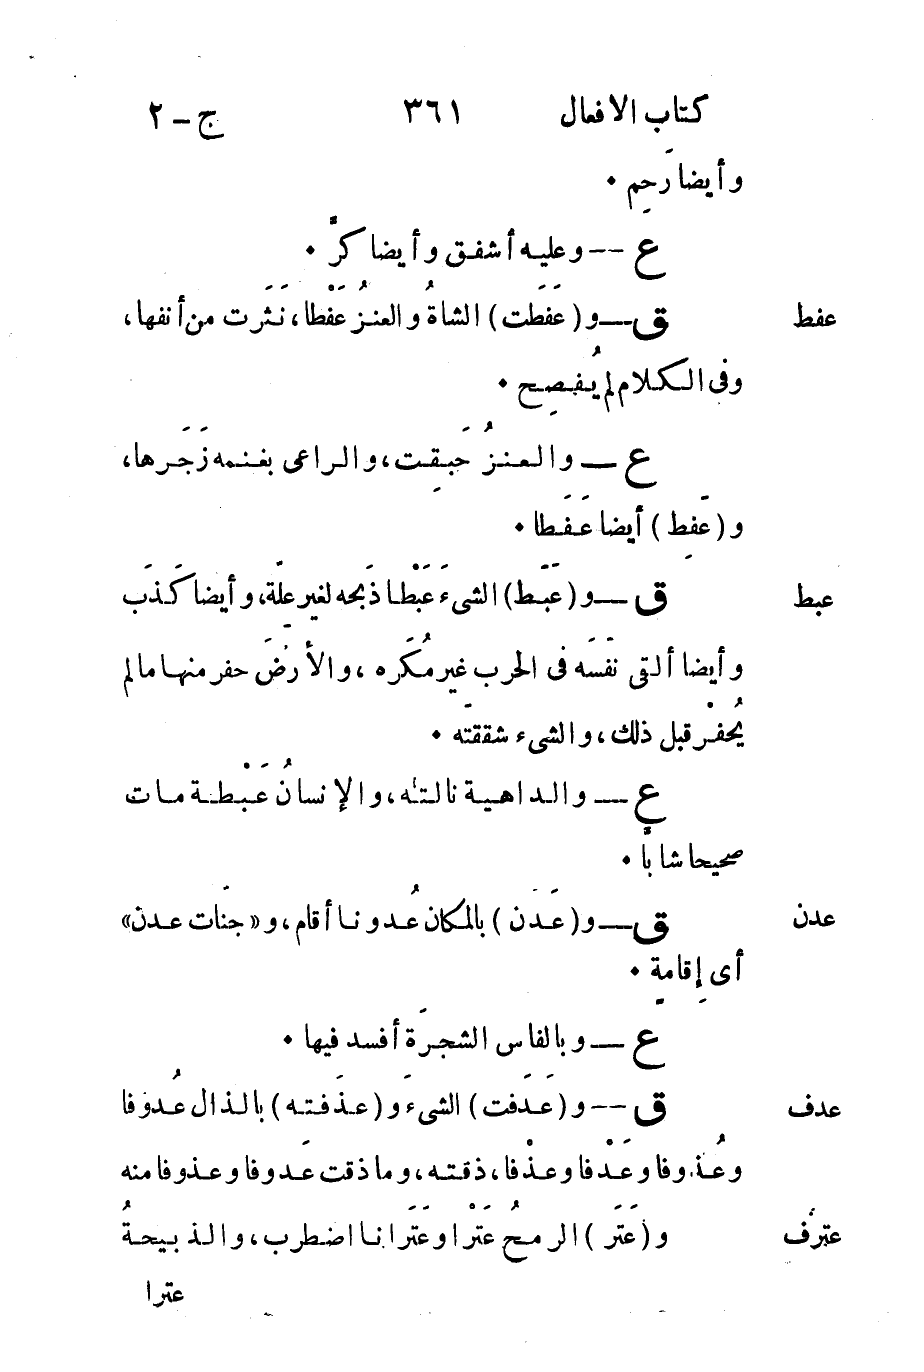 كتاب الافعال ٣٦١ ج – ٢
وأيضا رَحِم •
ع -- وعليه أشفق وأيضا كرَّ •
عفط ق — و (عَفَطت) الشاةُ والعنزُ عَفْطا، نَثَرت من أنفها،
وفى الكلام لم يُفصِح •
ع — والعنزُ حَبِقت، والراعى بغنمه زَجَرها،
و (عَفِط) أيضا عَفَطا •
عبط ق — و (عَبَط) الشىءَ عَبْطا ذَبحه لغير عِلَّة، وأيضا كَذَب
وأيضا ألقى نَفْسَه فى الحرب غير مُكرَه، والأرْضَ حفر منها ما لم
يُحفَرْ قبل ذلك، والشىء شققته •
ع — والداهية نالتْه، والإنسانُ عَبْطة مات
صحيحا شابًّا •
عدن ق — و (عَدَن) بالمكان عُدونا أقام، و «جنَّات عدن»
أى إِقامةٍ •
ع — وبالفاس الشجرَة أفسد فيها •
عدف ق -- و (عَدَفت) الشىءَ و (عذَفته) بالذال عُدوفا
وعُذوفا وعَدْفا وعذْفا، ذقته، وما ذقت عَدوفا وعذوفا منه
عترُف و (عَتَر) الرمحُ عَتْرا وعَتَرانا اضطرب، والذبيحةُ
عترا